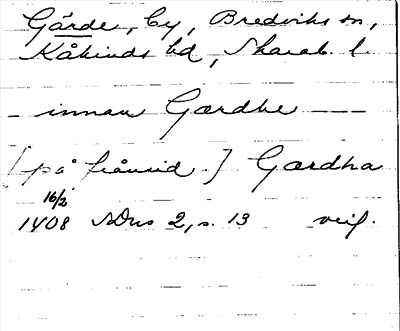 Gärde, by, Bredviks sn,
Kåkinds hd, Skarab. l.
— innan Gærdhe — —
[på frånsid.] Gærdha
16/2
1408 SDns 2, s. 13 orig.